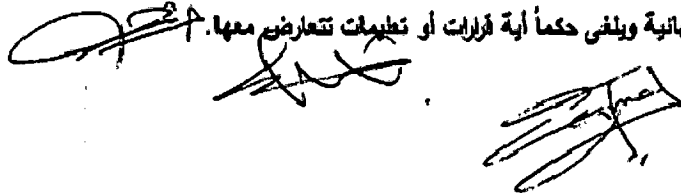 انية ويلغى حكماً أية قرارات أو تعليمات تتعارض معها.